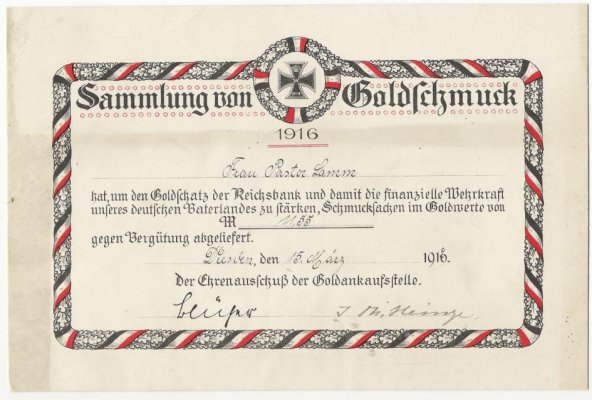 Sammlung von Goldschmuck
1916
Frau Pastor Lamm
hat, um den Goldschatz der Reichsbank und damit die finanzielle Wehrkraft
unseres deutschen Vaterlandes zu stärken, Schmucksachen im Goldwerte von
M 1155
gegen Vergütung abgeliefert.
Dresden, den 15. März 1916.
Der Ehrenausschuß der Goldankaufsstelle.
Blüher